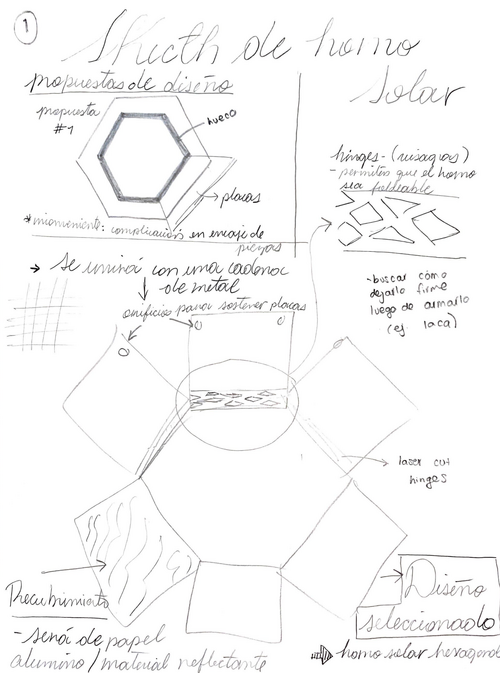 1
Skecth de horno
solar
propuestas de diseño
propuesta
#1
hueco
placas
complicación en encaje de
piezas
hinges - (visagras)
- permiten que el horno
sea foldeable
→ se unirá con una cadena
de metal
orificios para sostener placas
-buscar cómo
dejarlo firme
luego de armarlo
(ej. laca)
laser cut
hinges
Recubrimiento
- será de papel
aluminio/material reflectante
Diseño
seleccionado
horno solar hexagonal